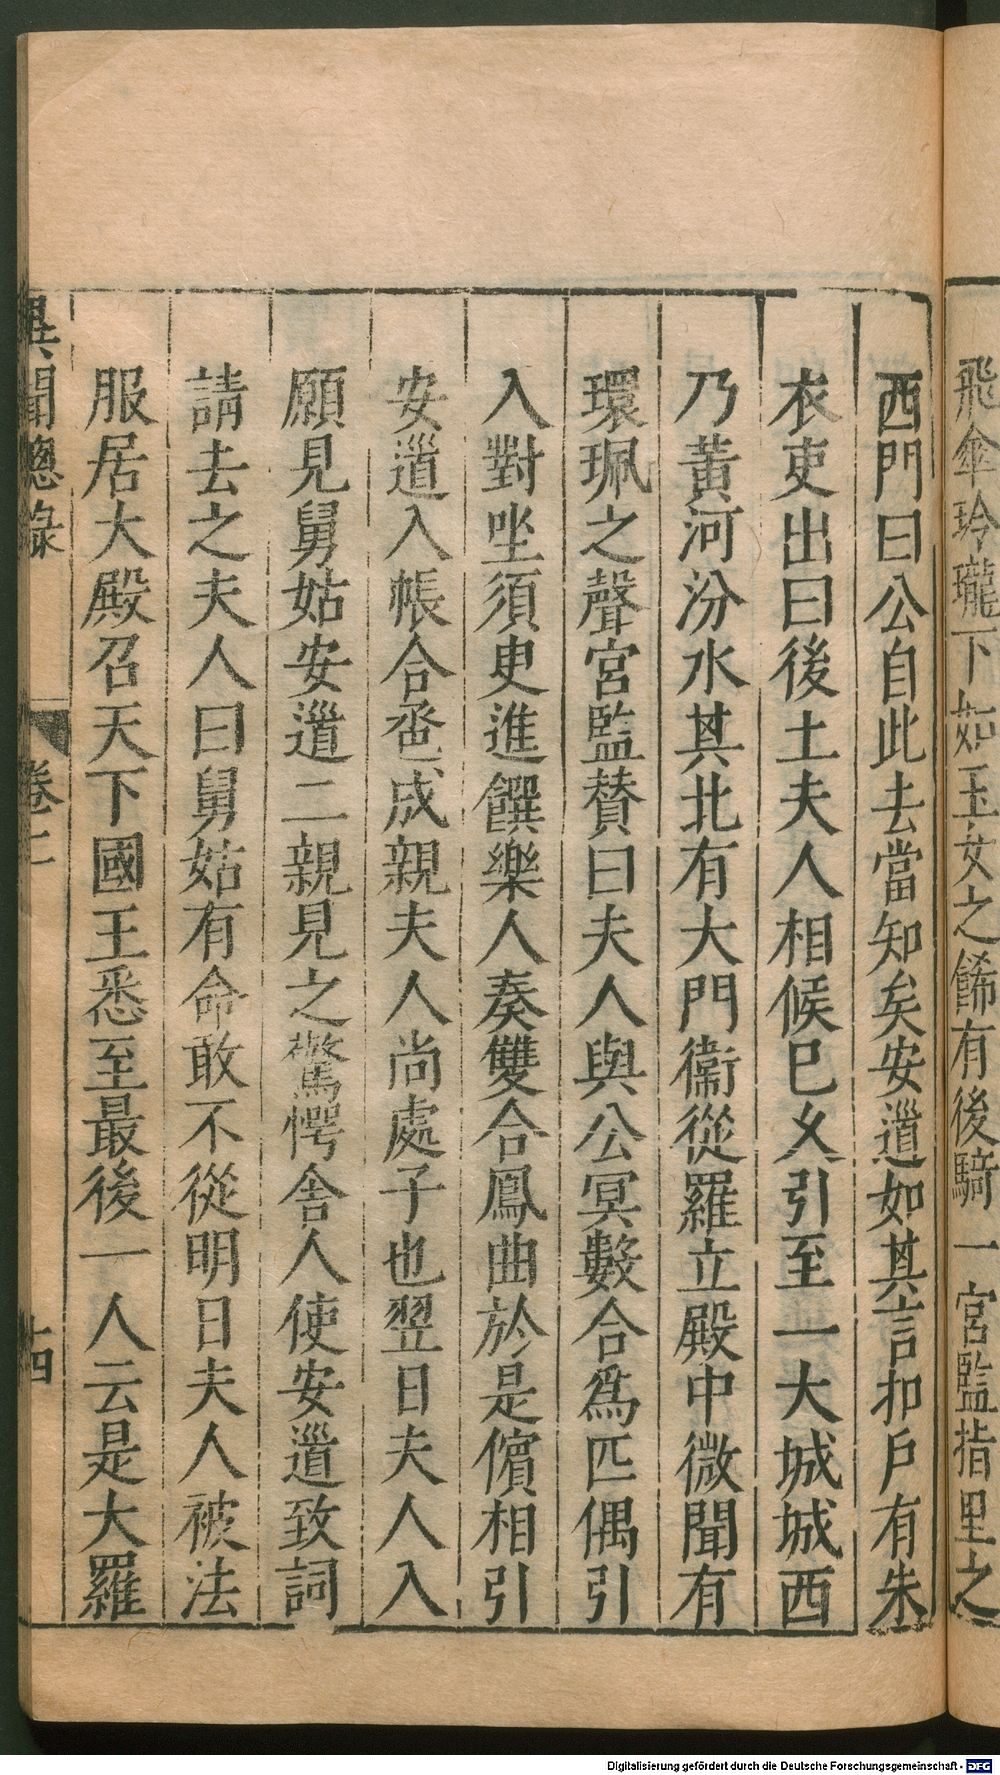 飛傘玲瓏下如玉女之餙有後騎一宮監指里之
西門曰公自此去當知矣安道如其言扣戶有朱
衣吏出曰後土夫人相候已久引至一大城城西
乃黃河汾水其北有大門衛從羅立殿中微聞有
環珮之聲宮監賛曰夫人與公冥數合爲匹偶引
入對坐須臾進饌樂人奏雙合鳳曲於是儐相引
安道入帳合巹成親夫人尚處子也翌日夫人入
願見舅姑安道二親見之驚愕舍人使安道致詞
請去之夫人曰舅姑有命敢不從明日夫人被法
服居大殿召天下國王悉至最後一人云是大羅
異聞總錄
卷二
十四
Digitalisierung gefördert durch die Deutsche Forschungsgemeinschaft - DFG